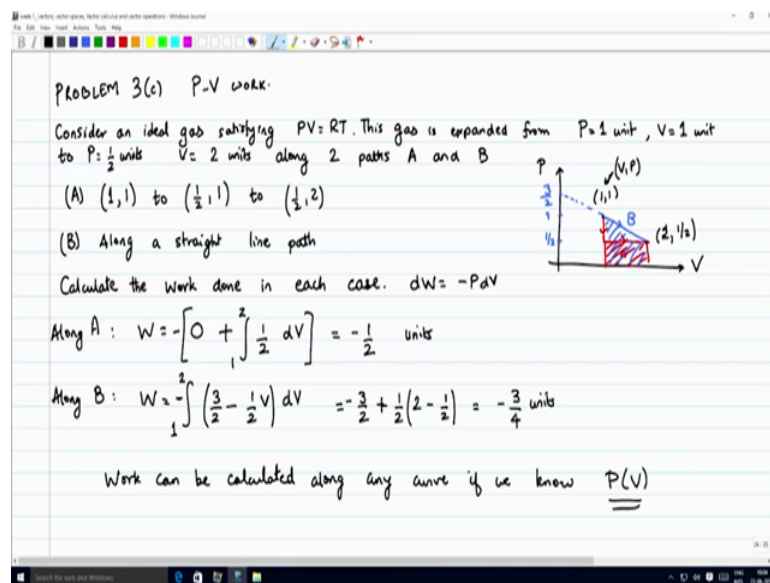 week 1_ vectors, vector spaces, Vector calculus and vector operations - Windows Journal
File Edit View Insert Actions Tools Help
PROBLEM 3(c) P-V WORK.
Consider an ideal gas satisfying PV = RT. This gas is expanded from P=1 unit, V=1 unit
to P=½ units V= 2 units along 2 paths A and B
(A) (1,1) to (½,1) to (½,2)
(B) Along a straight line path
Calculate the work done in each case. dW= -PdV
P
(V,P)
3/2
(1,1)
1
B
1/2
(2,1/2)
V
Along A: W = -[0 + ∫₁² ½ dV] = -½ units
Along B: W = -∫₁² (3/2 - ½V) dV = -3/2 + ½(2 - ½) = -3/4 units
Work can be calculated along any curve if we know P(V)
24 / 25
Search the web and Windows
ENG
10:04